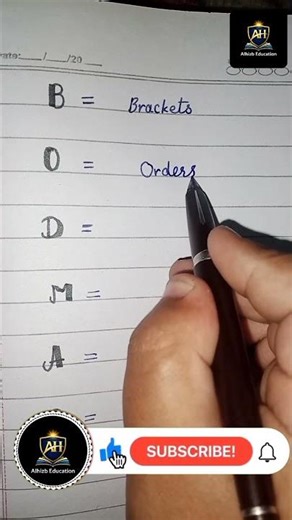 AH
Alhizb Education
Date:___/___/20___
B = Brackets
O = Orders
D =
M =
A =
=
AH
Alhizb Education
SUBSCRIBE!